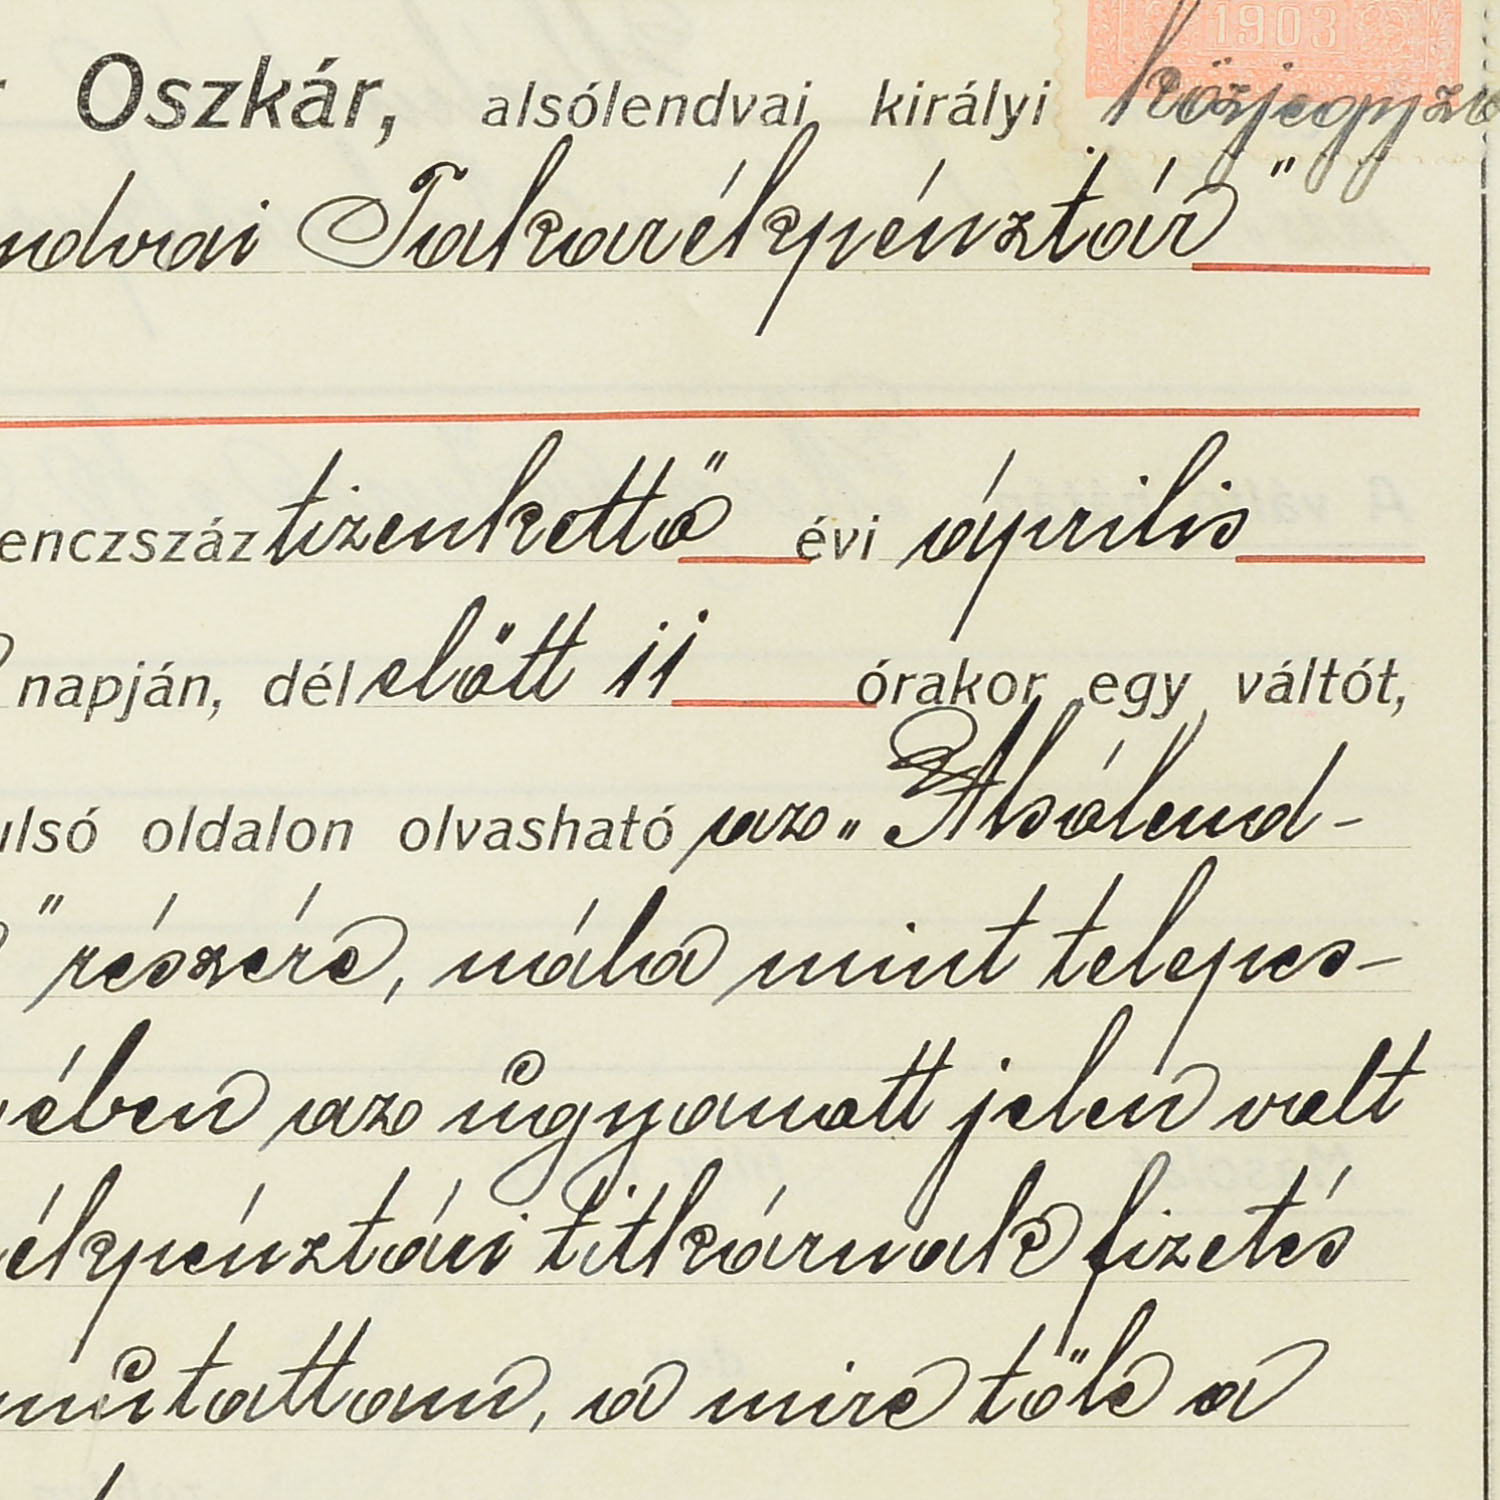 1903
Oszkár, alsólendvai királyi közjegyző
ndvai Takarékpénztár"
enczszáz tizenkettő évi április
napján, délelőtt 11 órakor egy váltót,
ulsó oldalon olvasható az „Alsólend-
" részére, nála mint telepes-
ében az ugyanott jelen volt
ékpénztári titkárnak fizetés
mutattam, a mire tőle a